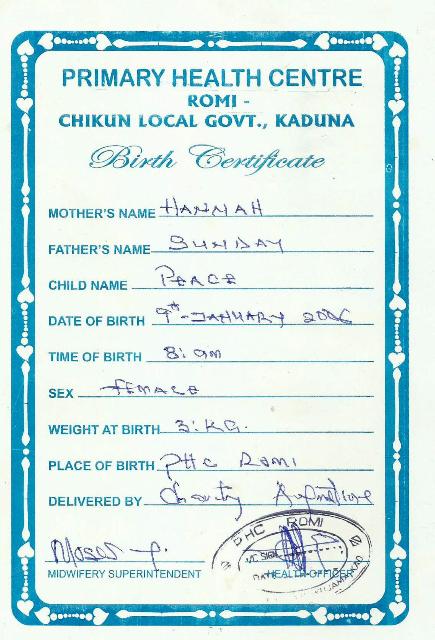 PRIMARY HEALTH CENTRE
ROMI -
CHIKUN LOCAL GOVT., KADUNA
Birth Certificate
MOTHER'S NAME HANNAH
FATHER'S NAME SUNDAY
CHILD NAME PEACE
DATE OF BIRTH 9th JANUARY 2006
TIME OF BIRTH 8: am
SEX female
WEIGHT AT BIRTH 3: KG.
PLACE OF BIRTH PHC ROMI
DELIVERED BY Charity
Moses
PHC ROMI
SIGN
DATE
MIDWIFERY SUPERINTENDENT HEALTH OFFICER